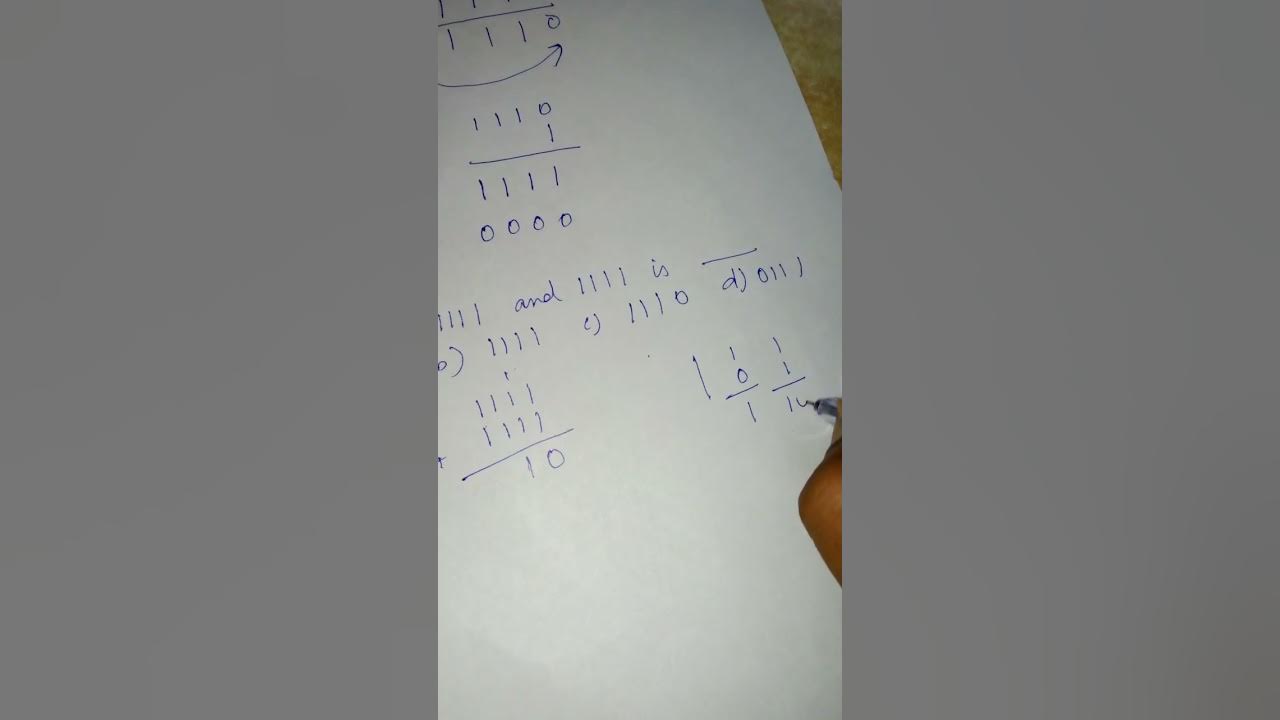 1 1 1 0
1 1 1 0
1
1 1 1 1
0 0 0 0
1111 and 1111 is ____
b) 1111 c) 1110 d) 0111
1
1111
+ 1111
1 0
1 1 1
0 1
1 10